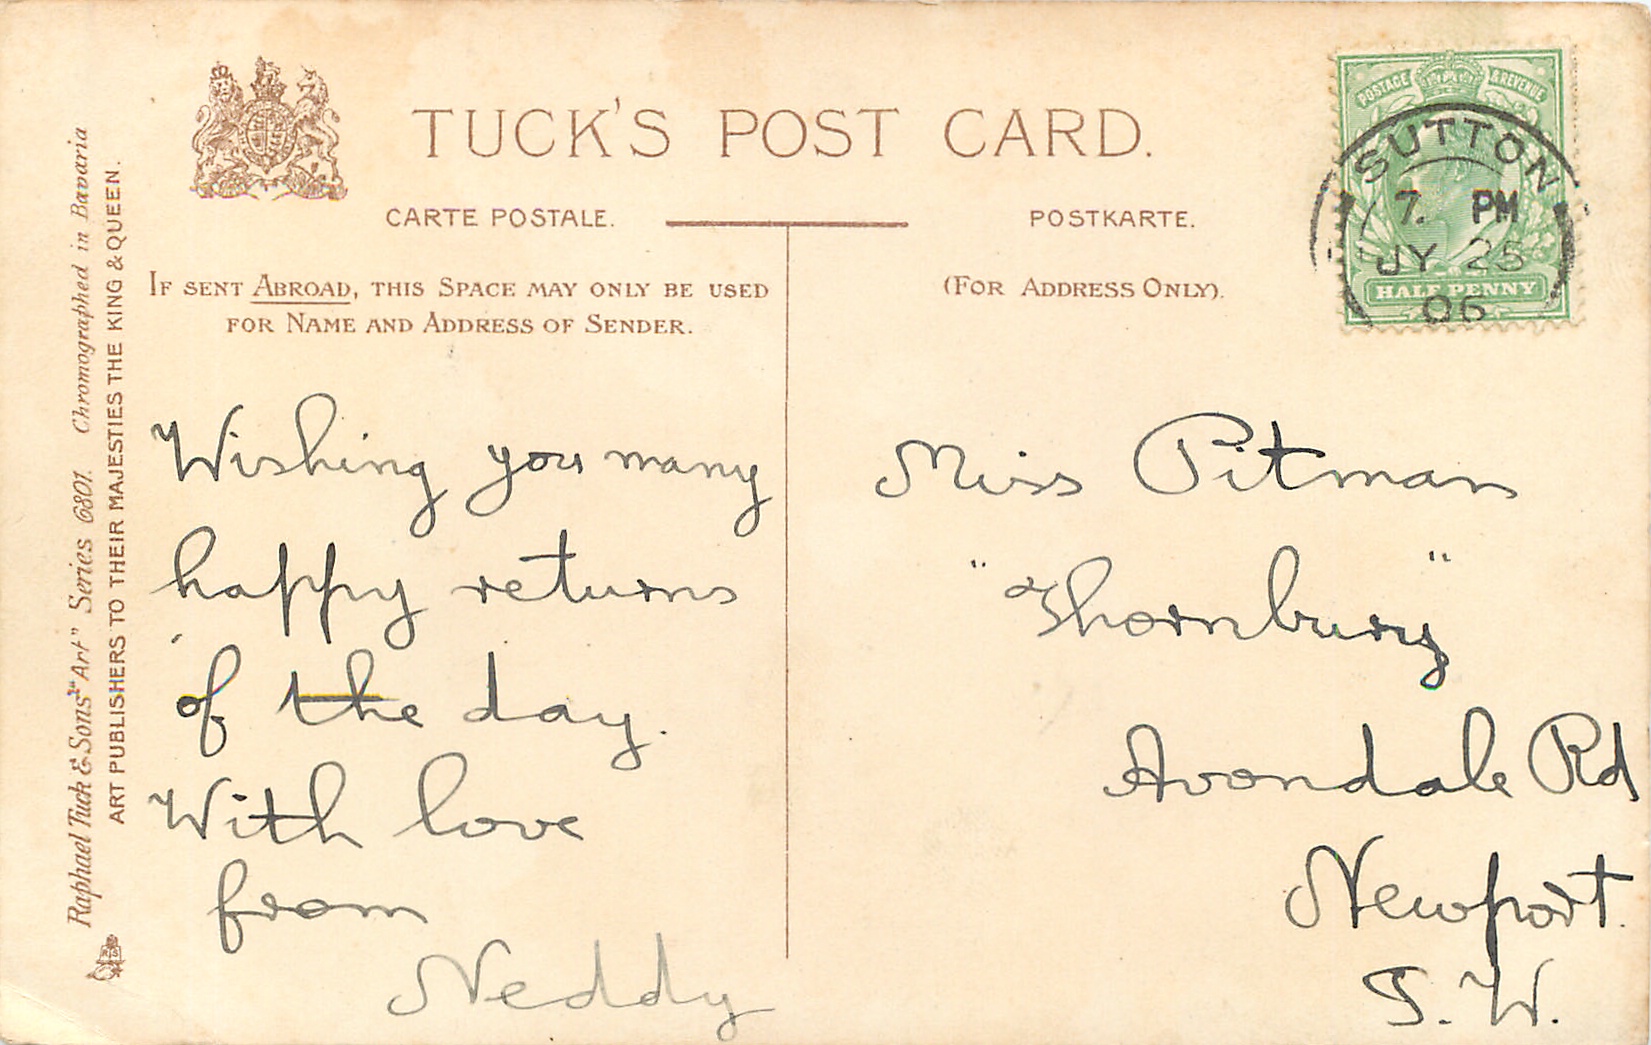 TUCK'S POST CARD.
CARTE POSTALE.
POSTKARTE.
IF SENT ABROAD, THIS SPACE MAY ONLY BE USED
FOR NAME AND ADDRESS OF SENDER.
(FOR ADDRESS ONLY).
POSTAGE & REVENUE
HALF PENNY
SUTTON
7. PM
JY 25
06
Raphael Tuck & Sons' "Art" Series 6801. Chromographed in Bavaria
ART PUBLISHERS TO THEIR MAJESTIES THE KING & QUEEN.
Wishing you many
happy returns
of the day.
With love
from
Neddy
Miss Pitman
"Thornbury"
Avondale Rd
Newport.
S. W.